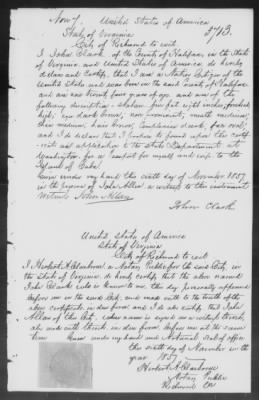 Nov 7. United States of America
State of Virginia 3713.
City of Richmond to wit
I John Clark of the County of Halifax, in the State
of Virginia, and United States of America, do hereby
declare and Certify, that I am a Native Citizen of the
United States and was born in the said County of Halifax
and am now years of age, and am of the
following description - stature five feet eight inches, forehead
high, eyes dark brown, nose prominent, mouth medium,
chin medium, hair brown, Complexion dark, face oval;
and I do declare that I to found when this certifi-
cate an application to the State Department at
Washington for a Passport for myself and wife to the
Island of Cuba.
Given under my hand this ninth day of November 1857
in the presence of John Allen a witness to this instrument
Witness John Allen
John Clark

United States of America
State of Virginia
City of Richmond to wit
I Herbert A. Claiborne a Notary Public for the said City, in
the State of Virginia, do hereby certify that the above named
John Clark who is known to me this day personally appeared
before me in the said City, and made oath to the truth of the
above certificate in due form and I do also certify that John
Allen of this City, whose name is signed as a witness
also made oath in due form, before me at the same
time Given under my hand and Notarial Seal of office
this ninth day of November in the
year 1857.
Herbert A. Claiborne
Notary Public
Richmond Va